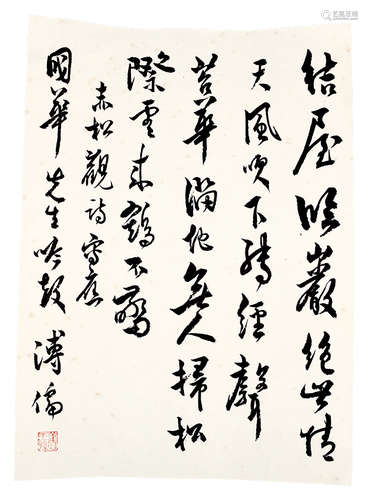 結屋臨巖絕世情
天風吹下轉經聲
苔華滿地無人掃松
際雲來鶴不驚
赤松觀詩寫應
國華先生吟教
溥儒